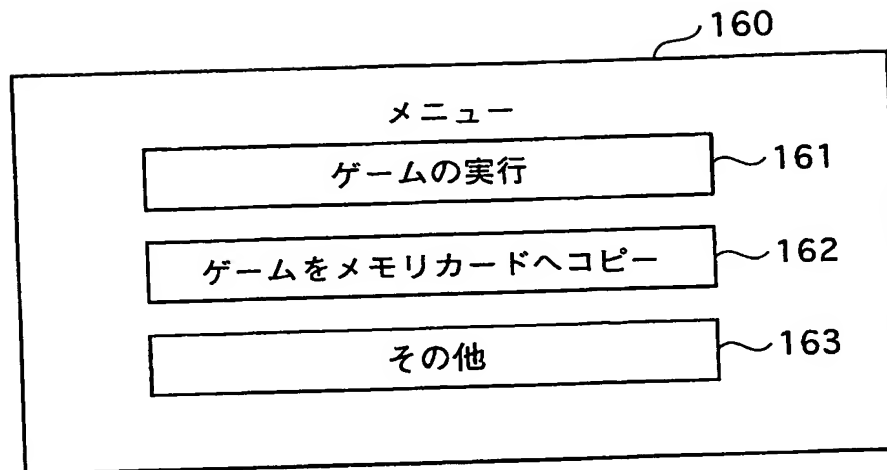 160
メニュー
ゲームの実行
161
ゲームをメモリカードへコピー
162
その他
163